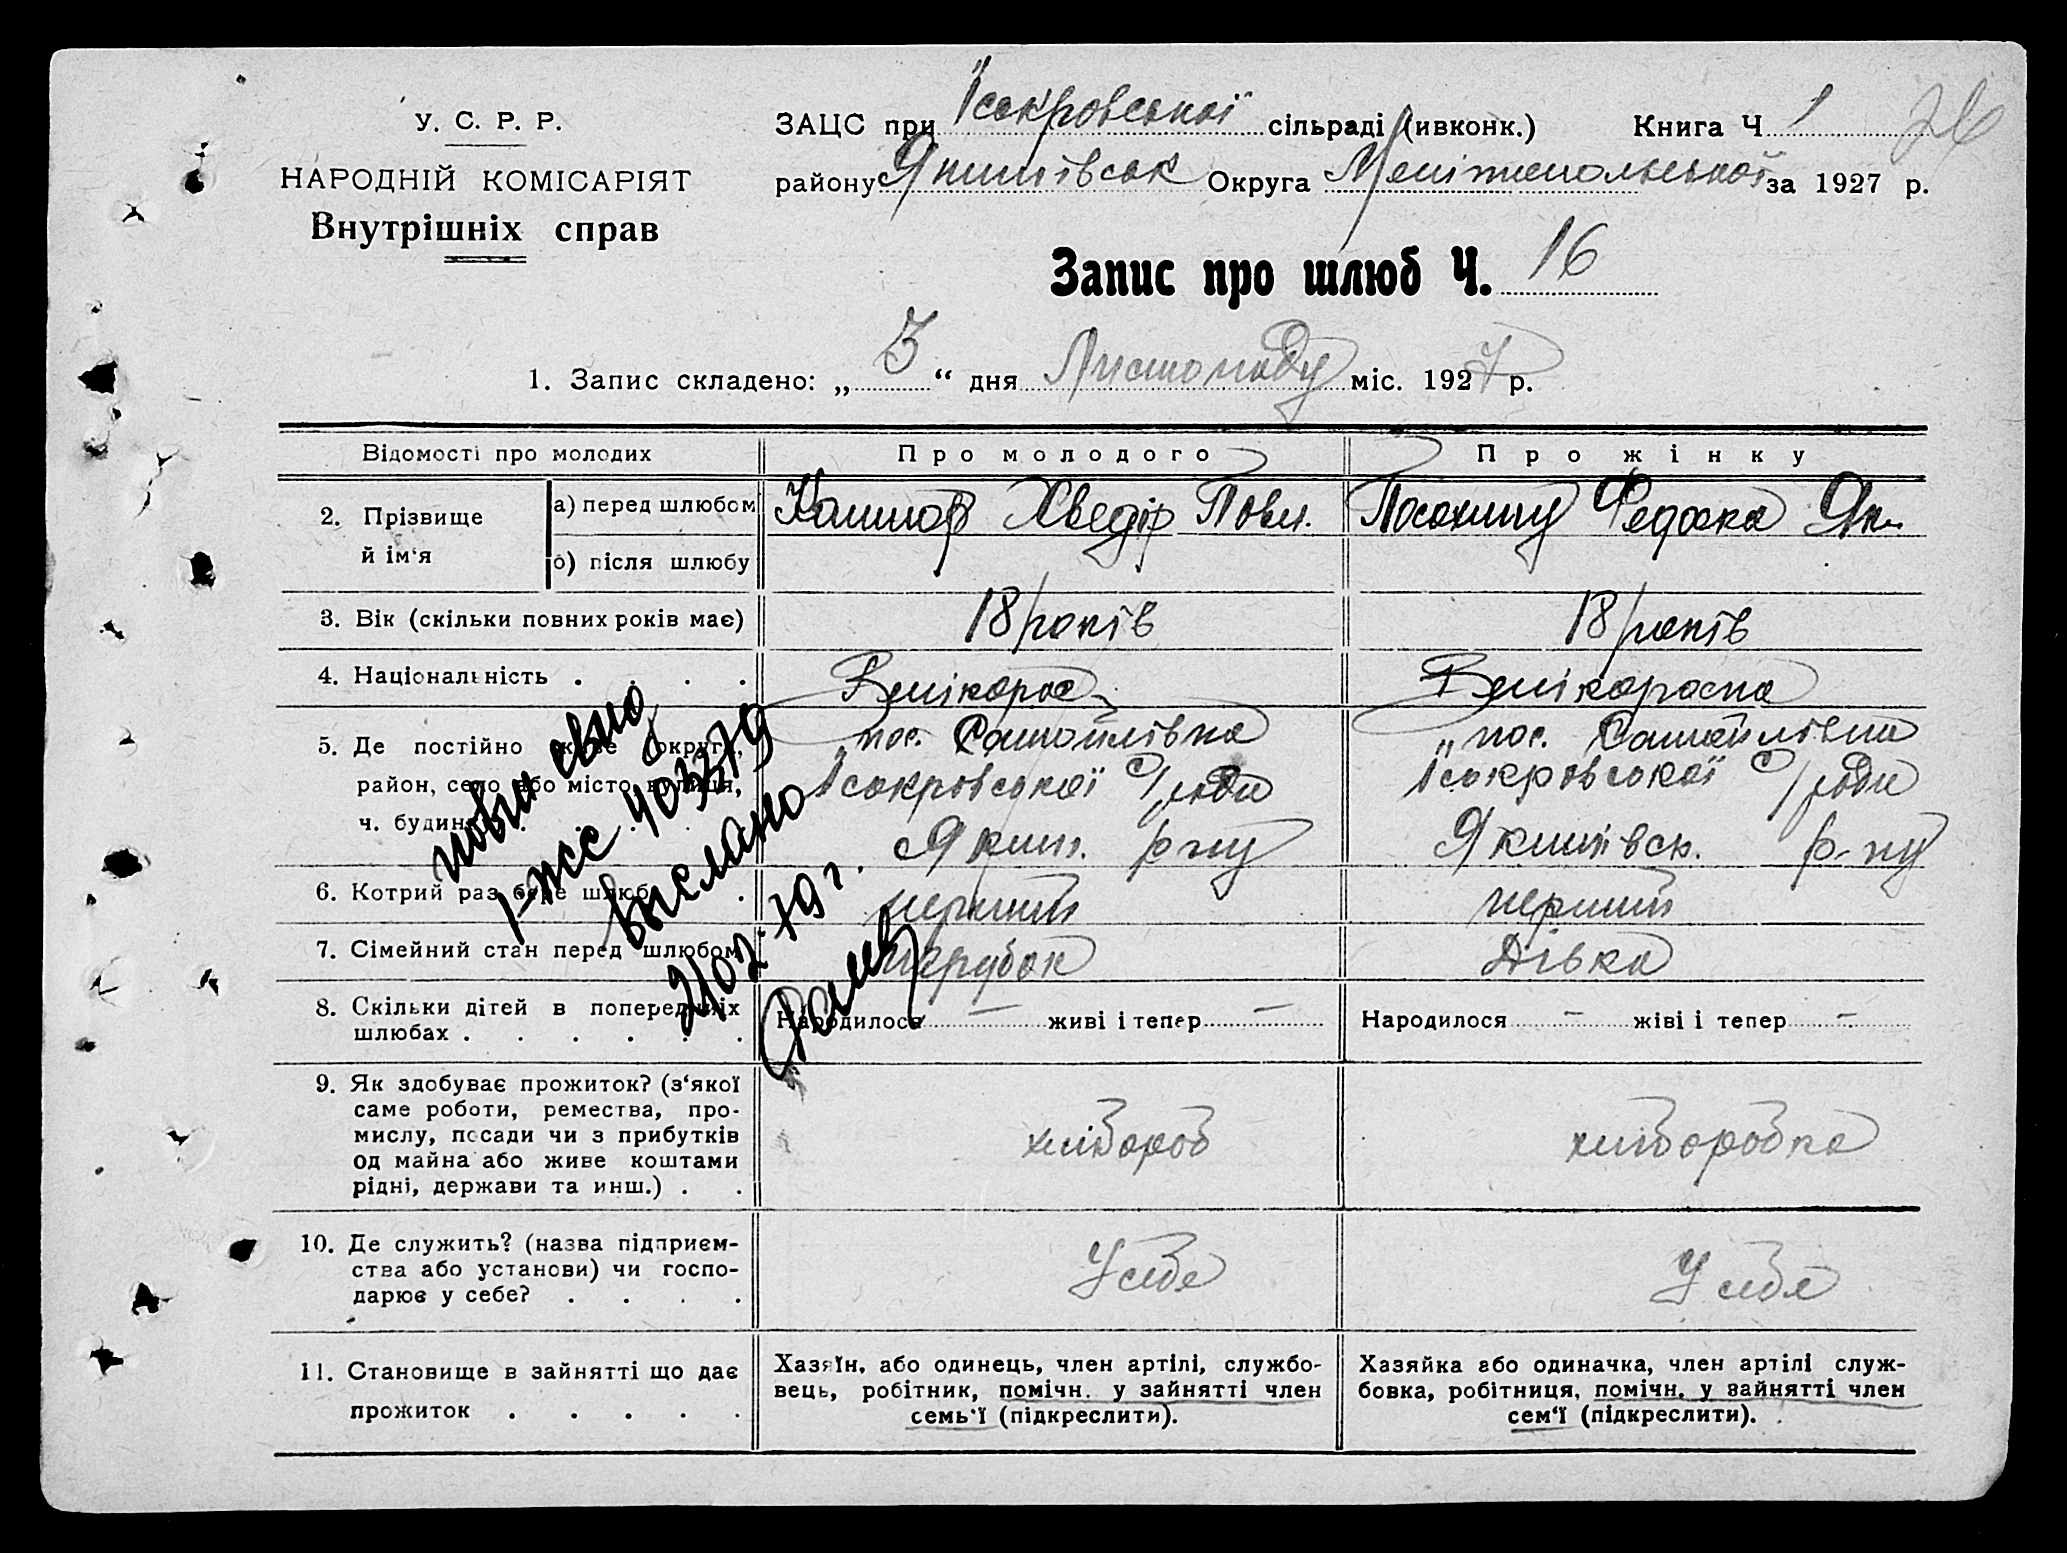 У. С. Р. Р.
НАРОДНІЙ КОМІСАРІЯТ
Внутрішніх справ
ЗАЦС при сільраді (ивконк.) Книга Ч 1
району Якимівськ Округа Мелітопольської за 1927 р.
Запис про шлюб Ч. 16
1. Запис складено: „ 3 “ дня Листопаду міс. 1927 р.
Відомості про молодих Про молодого Про жінку
2. Прізвище й ім‘я
а) перед шлюбом Хведір Павл. Федоска Як.
б) після шлюбу
3. Вік (скільки повних років має) 18 років 18 років
4. Національність . . . . Велікорос Велікороска
5. Де постійно живе (округа, пос. Самойлівка пос. Самойлівка
район, село або місто, вулиця, с/ради с/ради
ч. будинку) . . . . Яким. р-ну Якимівск. р-ну
6. Котрий раз бере шлюб . перший перший
7. Сімейний стан перед шлюбом парубок Дівка
8. Скільки дітей в попередніх шлюбах . . . . . .
Народилося — живі і тепер — Народилося — жіві і тепер —
9. Як здобуває прожиток? (з‘якої
саме роботи, ремества, про-
мислу, посади чи з прибутків хлібороб хліборобка
од майна або живе коштами
рідні, держави та инш.) . .
10. Де служить? (назва підприєм-
ства або установи) чи госпо- У себе У себе
дарює у себе? . . . .
11. Становище в зайнятті що дає
прожиток . . . . .
Хазяїн, або одинець, член артілі, службо-
вець, робітник, помічн. у зайнятті член
семь‘ї (підкреслити).
Хазяйка або одиначка, член артілі служ-
бовка, робітниця, помічн. у зайнятті член
сем‘ї (підкреслити).
повт. свид
выслано